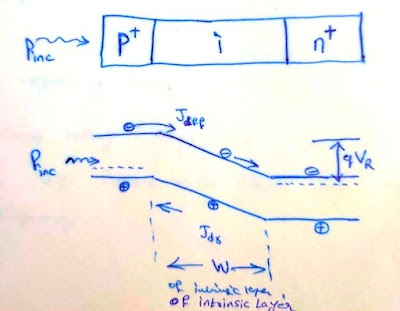 Pinc P+ i n+
Jdiff
qVR
Pinc
Jdr
W
of intrinsic layer
of intrinsic layer